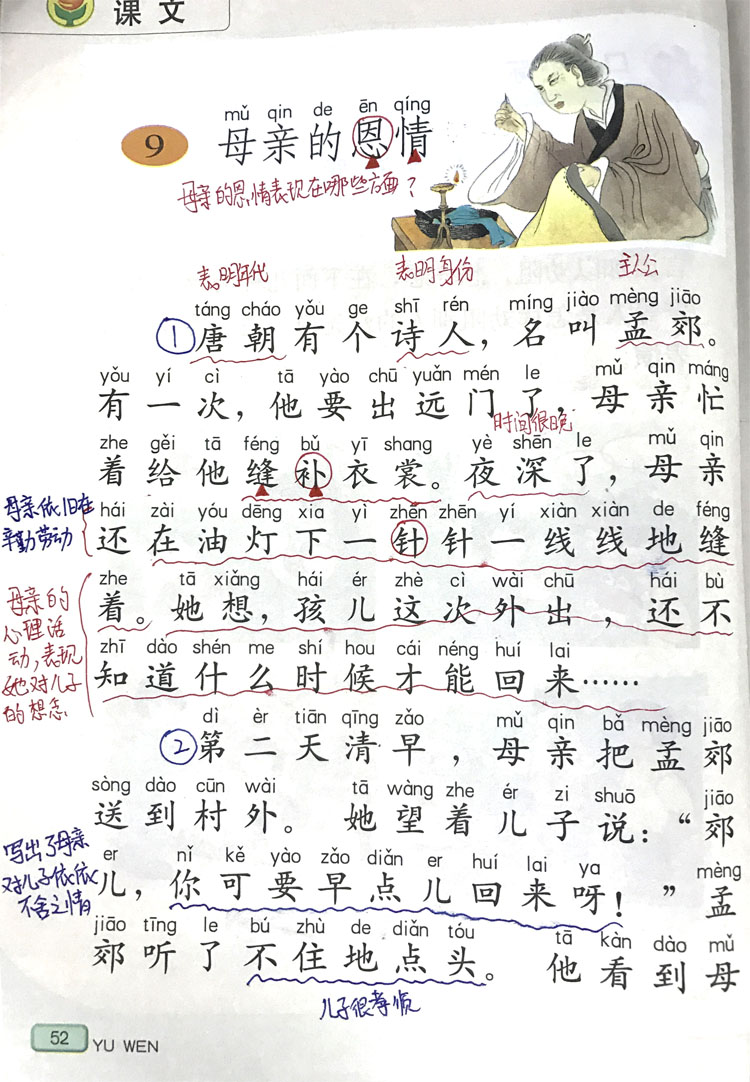 课文
mǔ qin de ēn qíng
9 母亲的恩情
母亲的恩情表现在哪些方面？
表明年代 表明身份 主人公
táng cháo yǒu ge shī rén míng jiào mèng jiāo
①唐朝有个诗人，名叫孟郊。
yǒu yí cì tā yào chū yuǎn mén le mǔ qin máng
有一次，他要出远门了，母亲忙
时间很晚
zhe gěi tā féng bǔ yī shang yè shēn le mǔ qin
着给他缝补衣裳。夜深了，母亲
母亲依旧在
辛勤劳动
hái zài yóu dēng xia yì zhēn zhēn yí xiàn xiàn de féng
还在油灯下一针针一线线地缝
zhe tā xiǎng hái ér zhè cì wài chū hái bù
着。她想，孩儿这次外出，还不
母亲的
心理活
动，表现
她对儿子
的想念
zhī dào shén me shí hou cái néng huí lai
知道什么时候才能回来……
dì èr tiān qīng zǎo mǔ qin bǎ mèng jiāo
②第二天清早，母亲把孟郊
sòng dào cūn wài tā wàng zhe ér zi shuō jiāo
送到村外。她望着儿子说：“郊
写出了母亲
对儿子依依
不舍之情
er nǐ kě yào zǎo diǎn er huí lai ya mèng
儿，你可要早点儿回来呀！”孟
jiāo tīng le bú zhù de diǎn tóu tā kàn dào mǔ
郊听了不住地点头。他看到母
儿子很孝顺
52 YU WEN